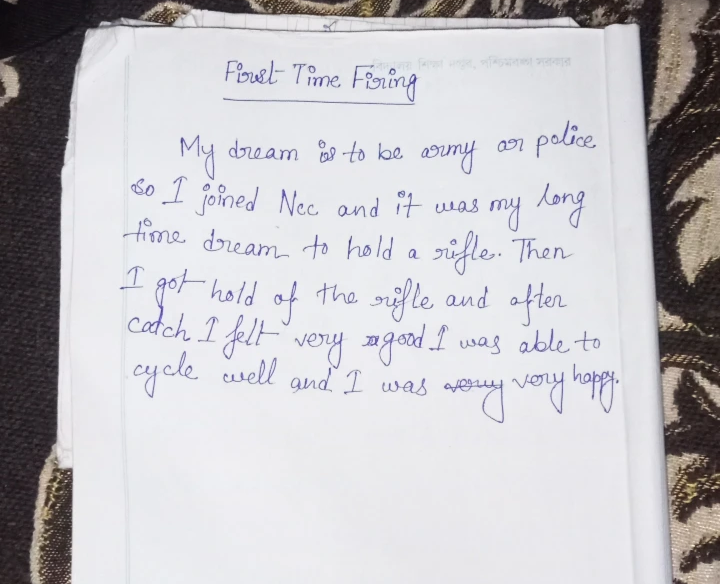 First Time Firing
My dream is to be army or police
so I joined Ncc and it was my long
time dream to hold a rifle. Then
I got hold of the rifle and after
catch I felt very good I was able to
cycle well and I was very very happy.